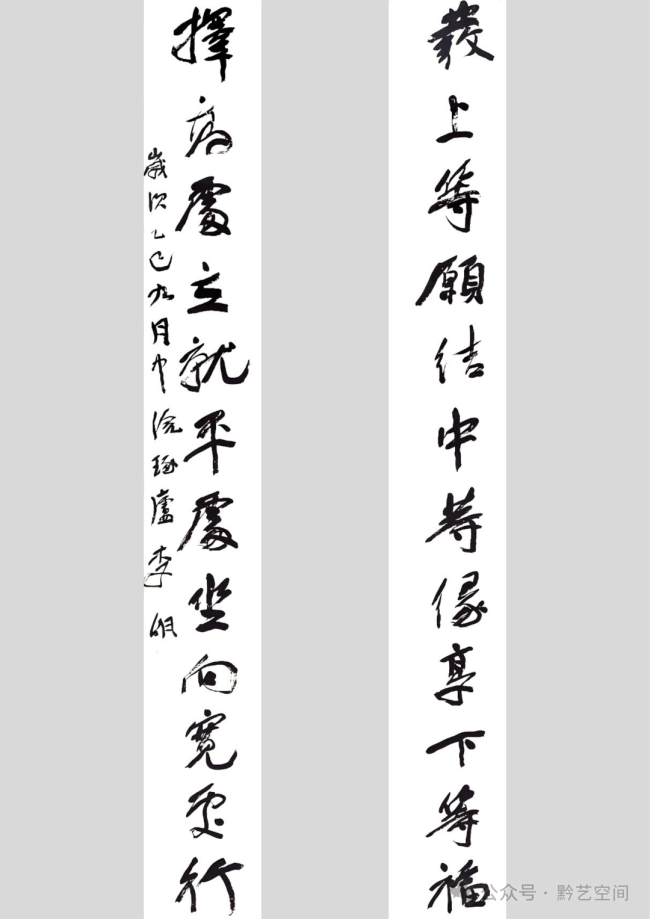 發上等願結中等緣享下等福
擇高處立就平處坐向寬處行
歲次乙巳九月中浣瑑廬李朙
公众号·黔艺空间